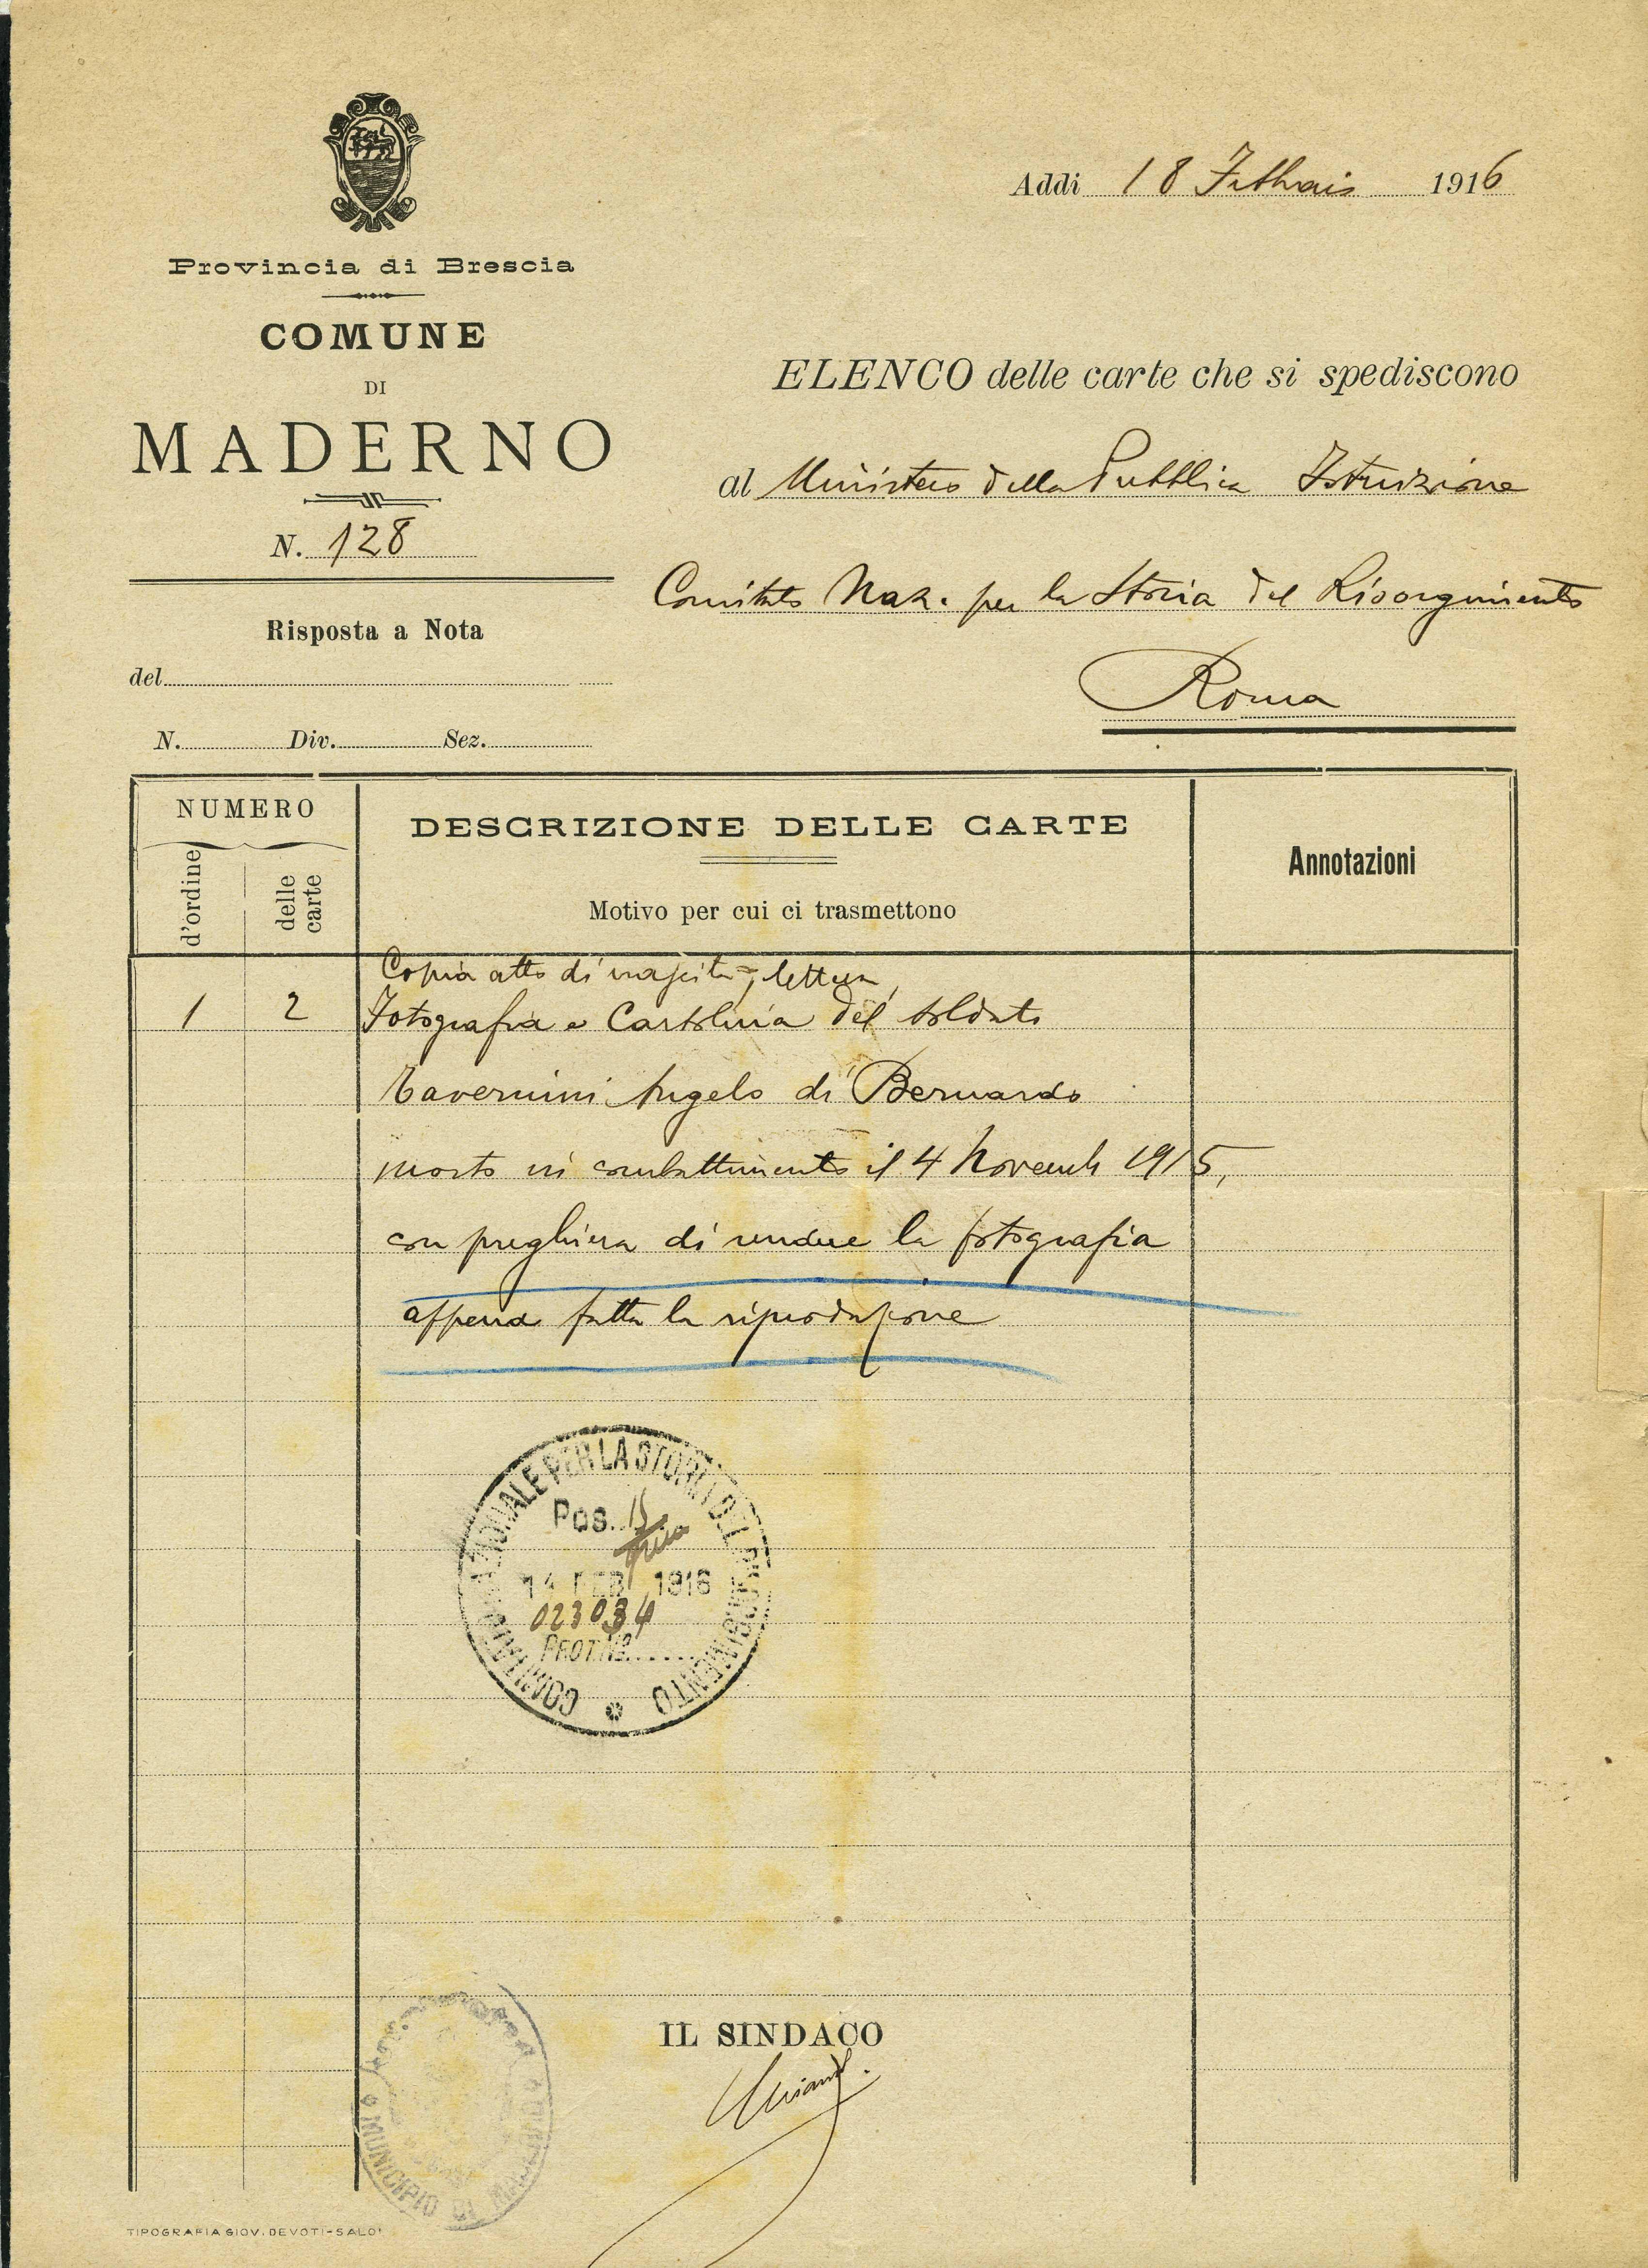 Provincia di Brescia
COMUNE
DI
MADERNO
N. 128
Risposta a Nota
del
N. Div. Sez.
Addì 18 Febbraio 1916
ELENCO delle carte che si spediscono
al Ministero della Pubblica Istruzione
Comitato Naz. per la Storia del Risorgimento
Roma
NUMERO
d'ordine
delle carte
DESCRIZIONE DELLE CARTE
Motivo per cui ci trasmettono
Annotazioni
Copia atto di nascita, lettera,
1 2 Fotografia e Cartolina del soldato
Tavernini Angelo di Bernardo
morto in combattimento il 4 Novemb 1915,
con preghiera di rendere la fotografia
appena fatta la riproduzione
COMITATO NAZIONALE PER LA STORIA DEL RISORGIMENTO
Pos.
14 FEB 1916
023034
PROT. No
IL SINDACO
MUNICIPIO DI MADERNO
TIPOGRAFIA GIOV. DEVOTI-SALO'